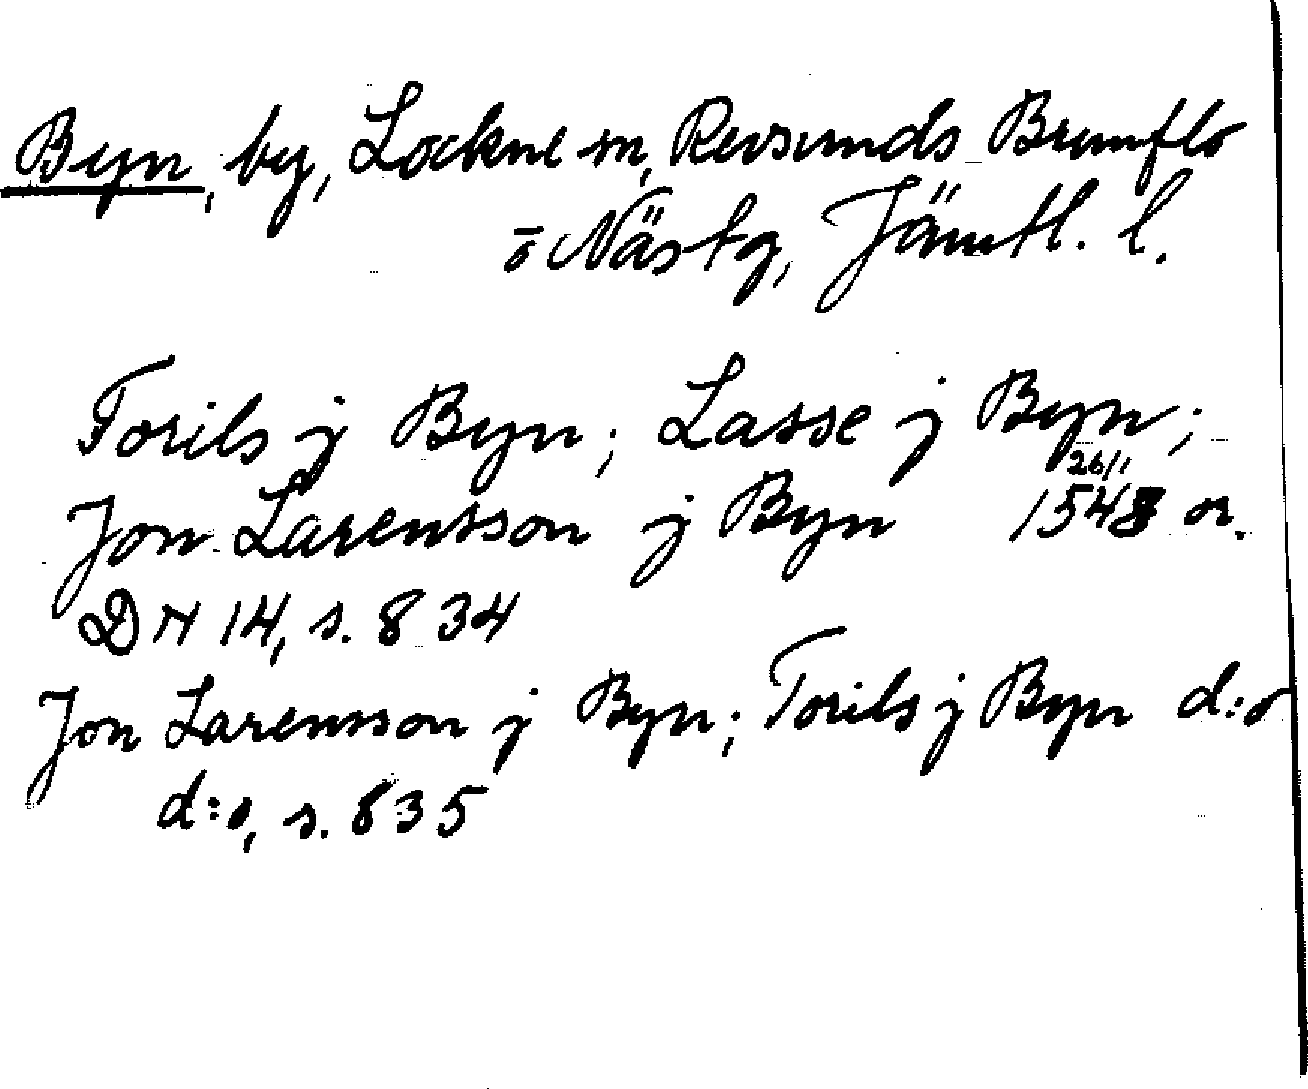 Byn, by, Lockne sn, Revsunds Brunflo
o Näs tg, Jämtl. l.
Torils j Byn; Lasse j Byn;
26/1
Jon Larensson j Byn 1548 or.
DN 14, s. 834
Jon Larensson j Byn; Torils j Byn d:o
d:o, s. 835